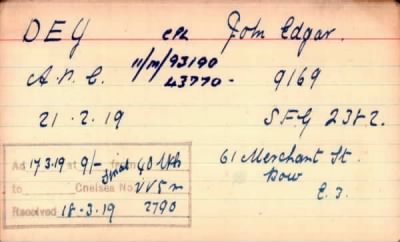 DEY CPL John Edgar.
11/M/93190
A.P.C. 43770 - 9169
21.2.19 S.F.G 2382.
Ad 17.3.19 at 9/- from final 40 Wks
to Chelsea No.
Received 18-3-19 2790
61 Merchant St.
Bow
E.3.